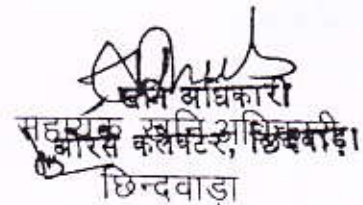 खनि अधिकारी
सहायक खनि अधिकारी
वास्ते कलेक्टर, छिन्दवाड़ा।
छिन्दवाड़ा